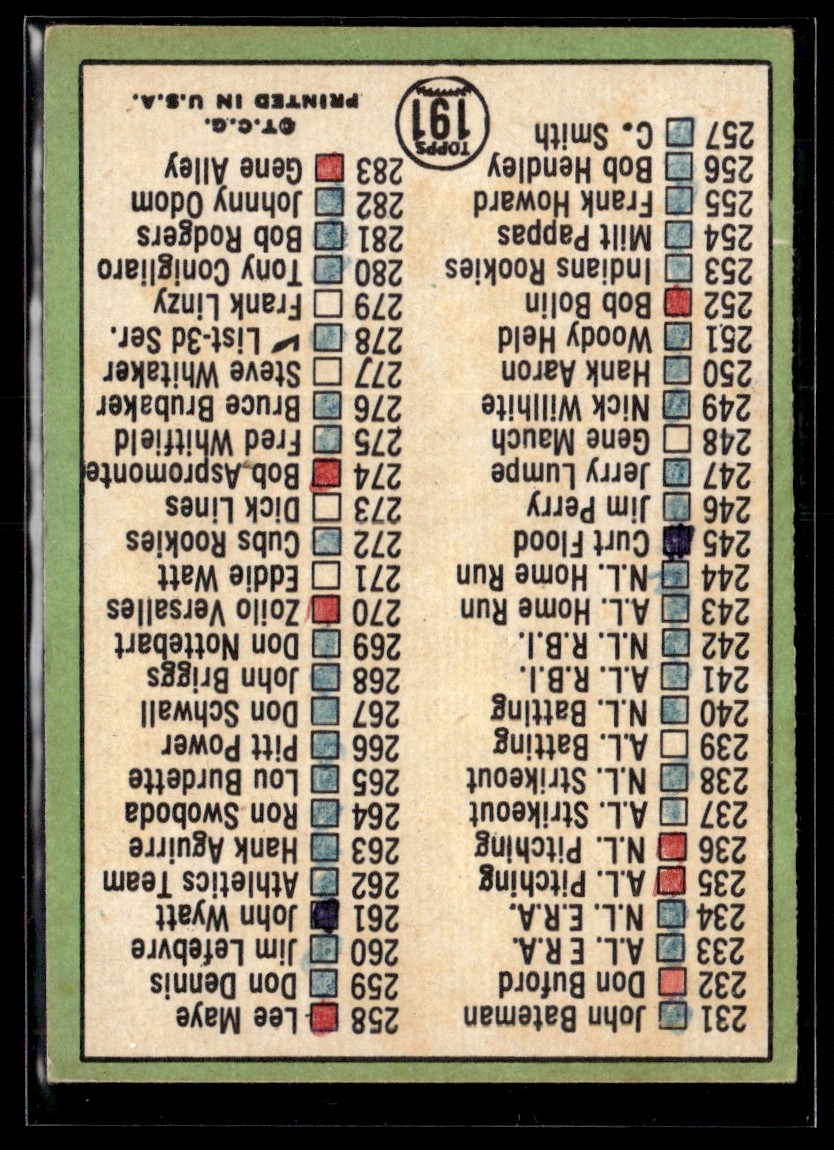 231 John Bateman
232 Don Buford
233 A.L. E.R.A.
234 N.L. E.R.A.
235 A.L. Pitching
236 N.L. Pitching
237 A.L. Strikeout
238 N.L. Strikeout
239 A.L. Batting
240 N.L. Batting
241 A.L. R.B.I.
242 N.L. R.B.I.
243 A.L. Home Run
244 N.L. Home Run
245 Curt Flood
246 Jim Perry
247 Jerry Lumpe
248 Gene Mauch
249 Nick Willhite
250 Hank Aaron
251 Woody Held
252 Bob Bolin
253 Indians Rookies
254 Milt Pappas
255 Frank Howard
256 Bob Hendley
257 C. Smith
258 Lee Maye
259 Don Dennis
260 Jim Lefebvre
261 John Wyatt
262 Athletics Team
263 Hank Aguirre
264 Ron Swoboda
265 Lou Burdette
266 Pitt Power
267 Don Schwall
268 John Briggs
269 Don Nottebart
270 Zoilo Versalles
271 Eddie Watt
272 Cubs Rookies
273 Dick Lines
274 Bob Aspromonte
275 Fred Whitfield
276 Bruce Brubaker
277 Steve Whitaker
278 ✔ List-3d Ser.
279 Frank Linzy
280 Tony Conigliaro
281 Bob Rodgers
282 Johnny Odom
283 Gene Alley
©T.C.G.
PRINTED IN U.S.A.
TOPPS
191